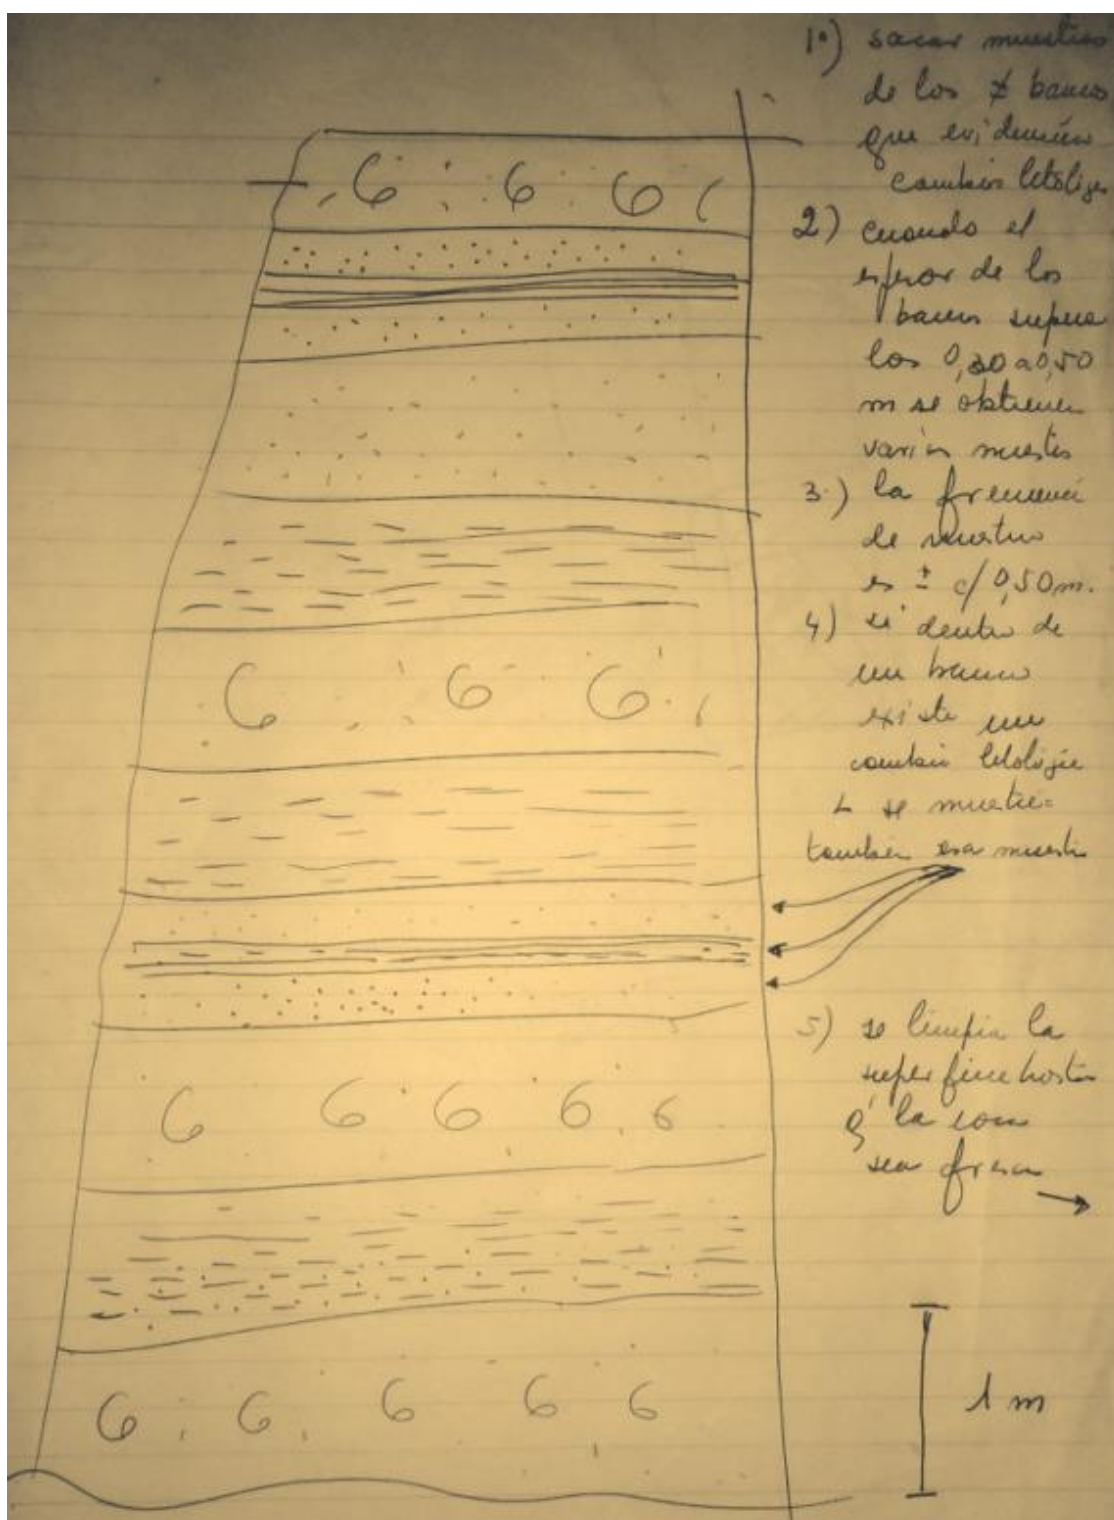 1º) sacar muestras
de los ≠ bancos
que evidencien
cambios litológi
2) cuando el
espesor de los
bancos supera
los 0,30 a 0,50
m se obtienen
varias muestras
3.) la frecuencia
de muestreo
es ± c/ 0,50 m.
4) si dentro de
un banco
existe un
cambio litológico
se muestre=
también esa muestra
5) se limpia la
superficie hasta
q' la roca
sea fresca
→
1 m
6 6 6
6 6 6
6 6 6 6 6
6 6 6 6 6